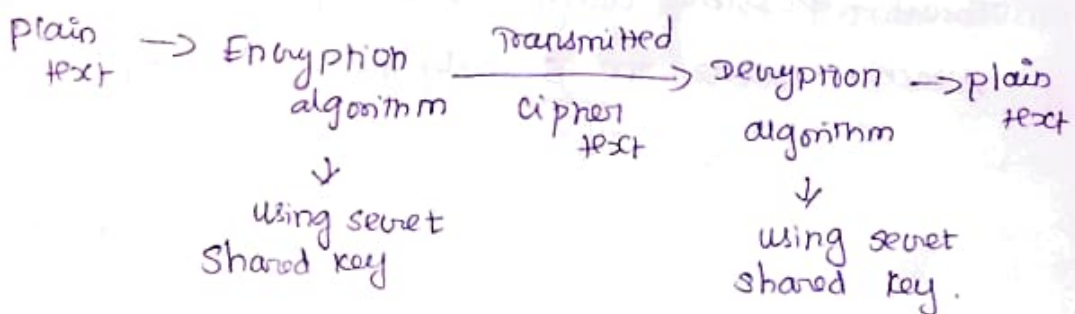 plain text → Encryption algorithm
Transmitted cipher text →
Decryption algorithm → plain text
↓
using secret
shared key
↓
using secret
shared key.